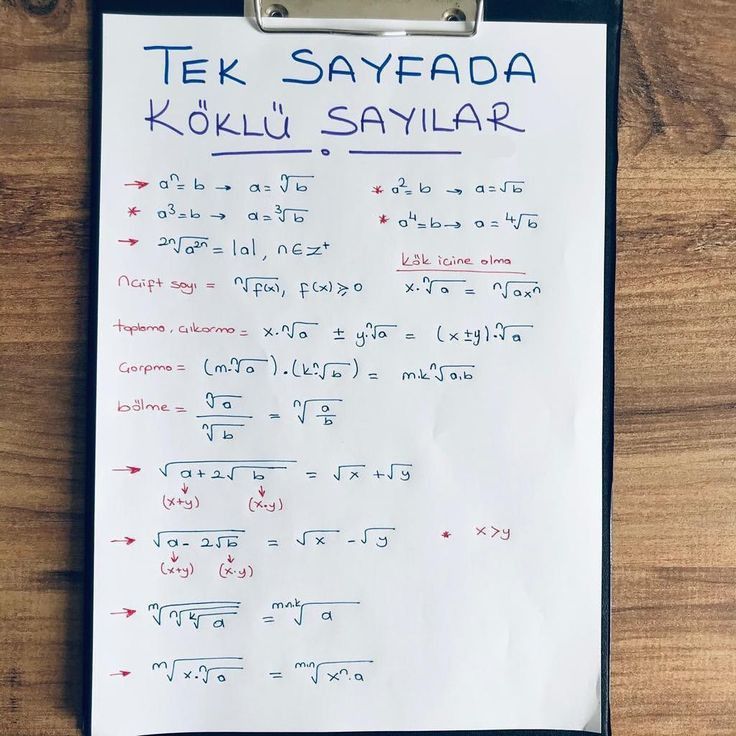 TEK SAYFADA
KÖKLÜ SAYILAR
→ aⁿ = b → a = ⁿ√b
* a² = b → a = √b
* a³ = b → a = ³√b
* a⁴ = b → a = ⁴√b
→ ²ⁿ√(a²ⁿ) = |a|, n ∈ Z⁺
kök içine alma
n çift sayı = ⁿ√f(x), f(x) ⩾ 0
x·ⁿ√a = ⁿ√(axⁿ)
toplama, çıkarma = x·ⁿ√a ± y·ⁿ√a = (x±y)·ⁿ√a
çarpma = (m·ⁿ√a)·(k·ⁿ√b) = m·k ⁿ√(a·b)
bölme = ⁿ√a / ⁿ√b = ⁿ√(a/b)
→ √(a+2√b) = √x + √y
(x+y) (x·y)
→ √(a-2√b) = √x - √y * x>y
(x+y) (x·y)
→ ᵐ√(ⁿ√(ᵏ√a)) = ᵐ·ⁿ·ᵏ√a
→ ᵐ√(x·ⁿ√a) = ᵐ·ⁿ√(xⁿ·a)